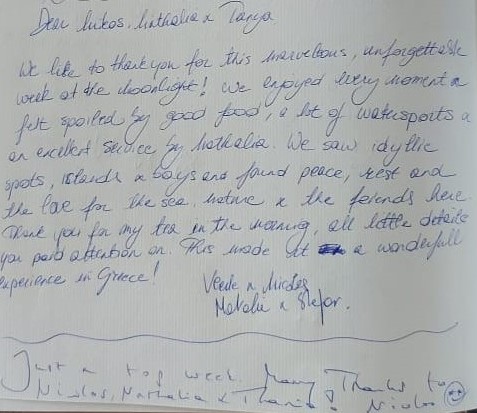 Dear Lukos, Nathalia & Tanya
We like to thank you for this marvellous, unforgettable
week at the Moonlight! We enjoyed every moment &
felt spoiled by good food, a lot of watersports &
an excellent service by Nathalia. We saw idyllic
spots, islands & bays and found peace, rest and
the love for the sea, nature & the friends here.
Thank you for my tea in the morning, all little details
you paid attention on. This made it a wonderfull
experience in Greece!
Natalie & Stefor.
Just a top week. Many Thanks to
Nicolas, Nathalia & Thania! Nicolas